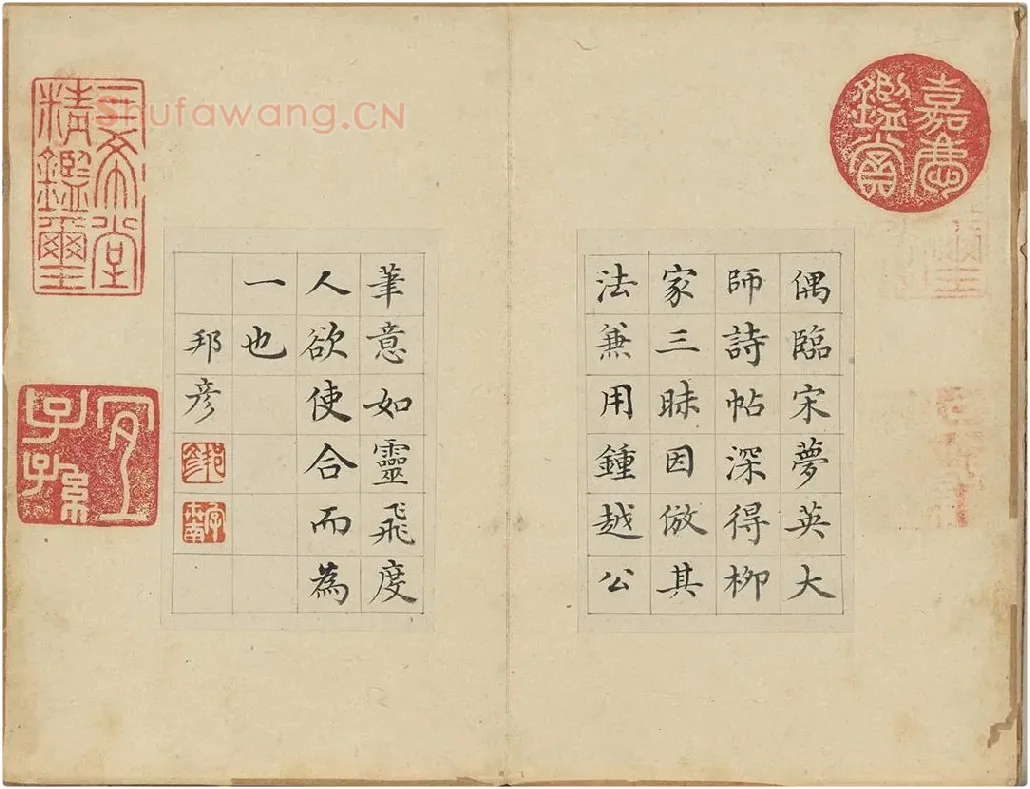 Shufawang.CN
嘉慶
鑑賞
偶臨宋夢英大
師詩帖深得柳
家三昧因倣其
法兼用鍾越公
筆意如靈飛度
人欲使合而為
一也
邦彦
邦彦
三希堂
精鑑璽
宜
子孫